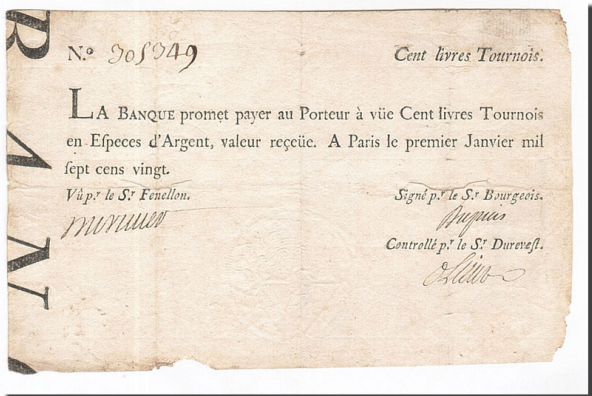 BANQ
N.º 305349 Cent livres Tournois.
LA BANQUE promet payer au Porteur à vüe Cent livres Tournois
en Eſpeces d'Argent, valeur reçeüe. A Paris le premier Janvier mil
ſept cens vingt.
Vû p.r le S.r Fenellon. Signé p.r le S.r Bourgeois.
Controllé p.r le S.r Dureveſt.